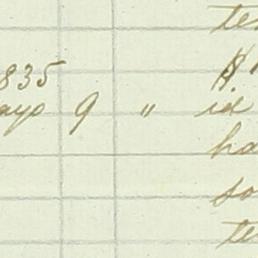 te
835
ayo 9 " id
ha
so
te